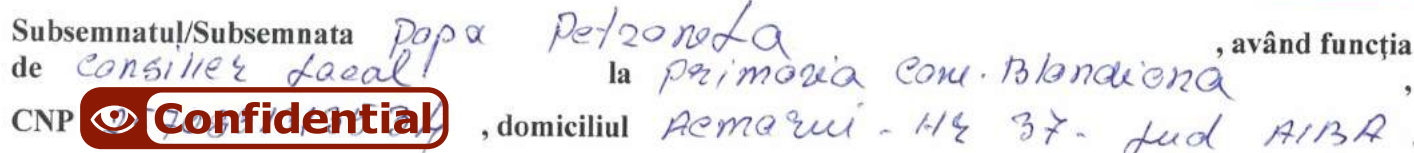 Subsemnatul/Subsemnata Popa Petroneta, având funcția
de Consilier Local la primăria Com. Blandiana,
CNP Confidential, domiciliul Acmariu - Nr 37 - Jud AlBA.